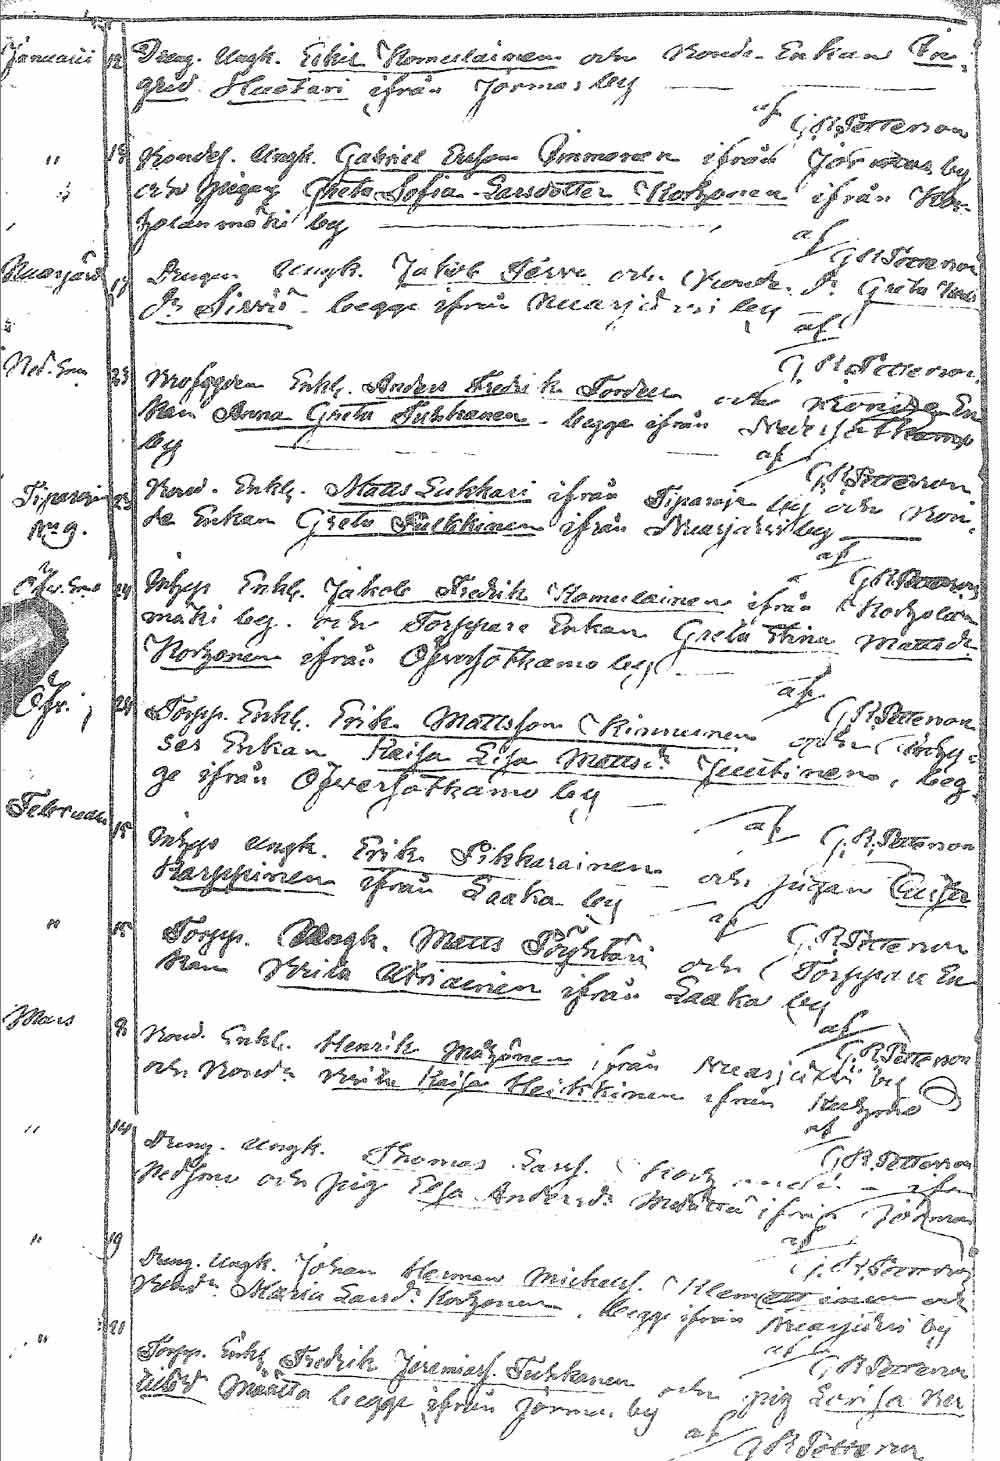 Januarii 12 Dreng. Ungk. Erkil Komulainen och Bonde-Enkan In-
grid Huotari ifrån Jormas by
af G R Petterson
" Bondes. Ungk. Gabriel Ersson Immonen ifrån Jormas by
och Pigan Greta Sofia Larsdotter Korhonen ifrån Kor-
holanmäki by
af G R Petterson
Nuasjärvi Drengen Ungk. Jakob Terva och Bonde. D. Greta
Sirviö begge ifrån Nuasjärvi by
af G. R. Petterson
Ned. Sm 23 Enkl. Anders Fredrik Tordeen och Bonde En
kan Anna Greta Tuhkanen begge ifrån Nedersotkamo
by
af G R Petterson
Tipasoja 23 Bond. Enkl. Matts Lukkari ifrån Tipasoja by och Bon-
N:o 9. de Enkan Greta Pulkkinen ifrån Nuasjärvi by
af G R Petterson
Öfv. Smo 24 Inhys Enkl. Jakob Fredrik Komulainen ifrån Korholan
mäki by. och Torppare Enkan Greta Stina Mattsdr
Korhonen ifrån Öfversotkamo by
af G R Petterson
Öfv. 24 Torpp. Enkl. Erik Mattsson Kinnunen och Inhy-
ses Enkan Kaisa Lisa Mattsdr Juutinen, beg-
ge ifrån Öfversotkamo by
af G. R. Petterson
Februari 15 Inhys Ungk. Erik Pikkarainen och Pigan
Karppinen ifrån Laaka by
af G. R. Petterson
" 15 Torpp. Ungk. Matts Pöyhtäri och Torppare En
kan Brita Utriainen ifrån Laaka by
af G. R. Petterson
Mars 8 Bond. Enkl. Henrik Mohonen ifrån Nuasjärvi by
och Bonde Brita Kaisa Heikkinen ifrån Kuhmo
af G. R. Petterson
" 14 Dreng. Ungk. Thomas Larss. ifrån
NedSmo och Pig Elsa Andersdr Määttä ifrån Jormas
af G. R. Petterson
" 19 Dreng. Ungk. Johan Herman Michelss. Klemettinen och
Bondr Maria Larsdr Korhonen, begge ifrån Nuasjärvi by
af G R Petterson
" 21 Torpp. Enkl Fredrik Jeremiass. Tuhkanen och pig Lovisa
Määttä begge ifrån Jormas by
af G R Petterson